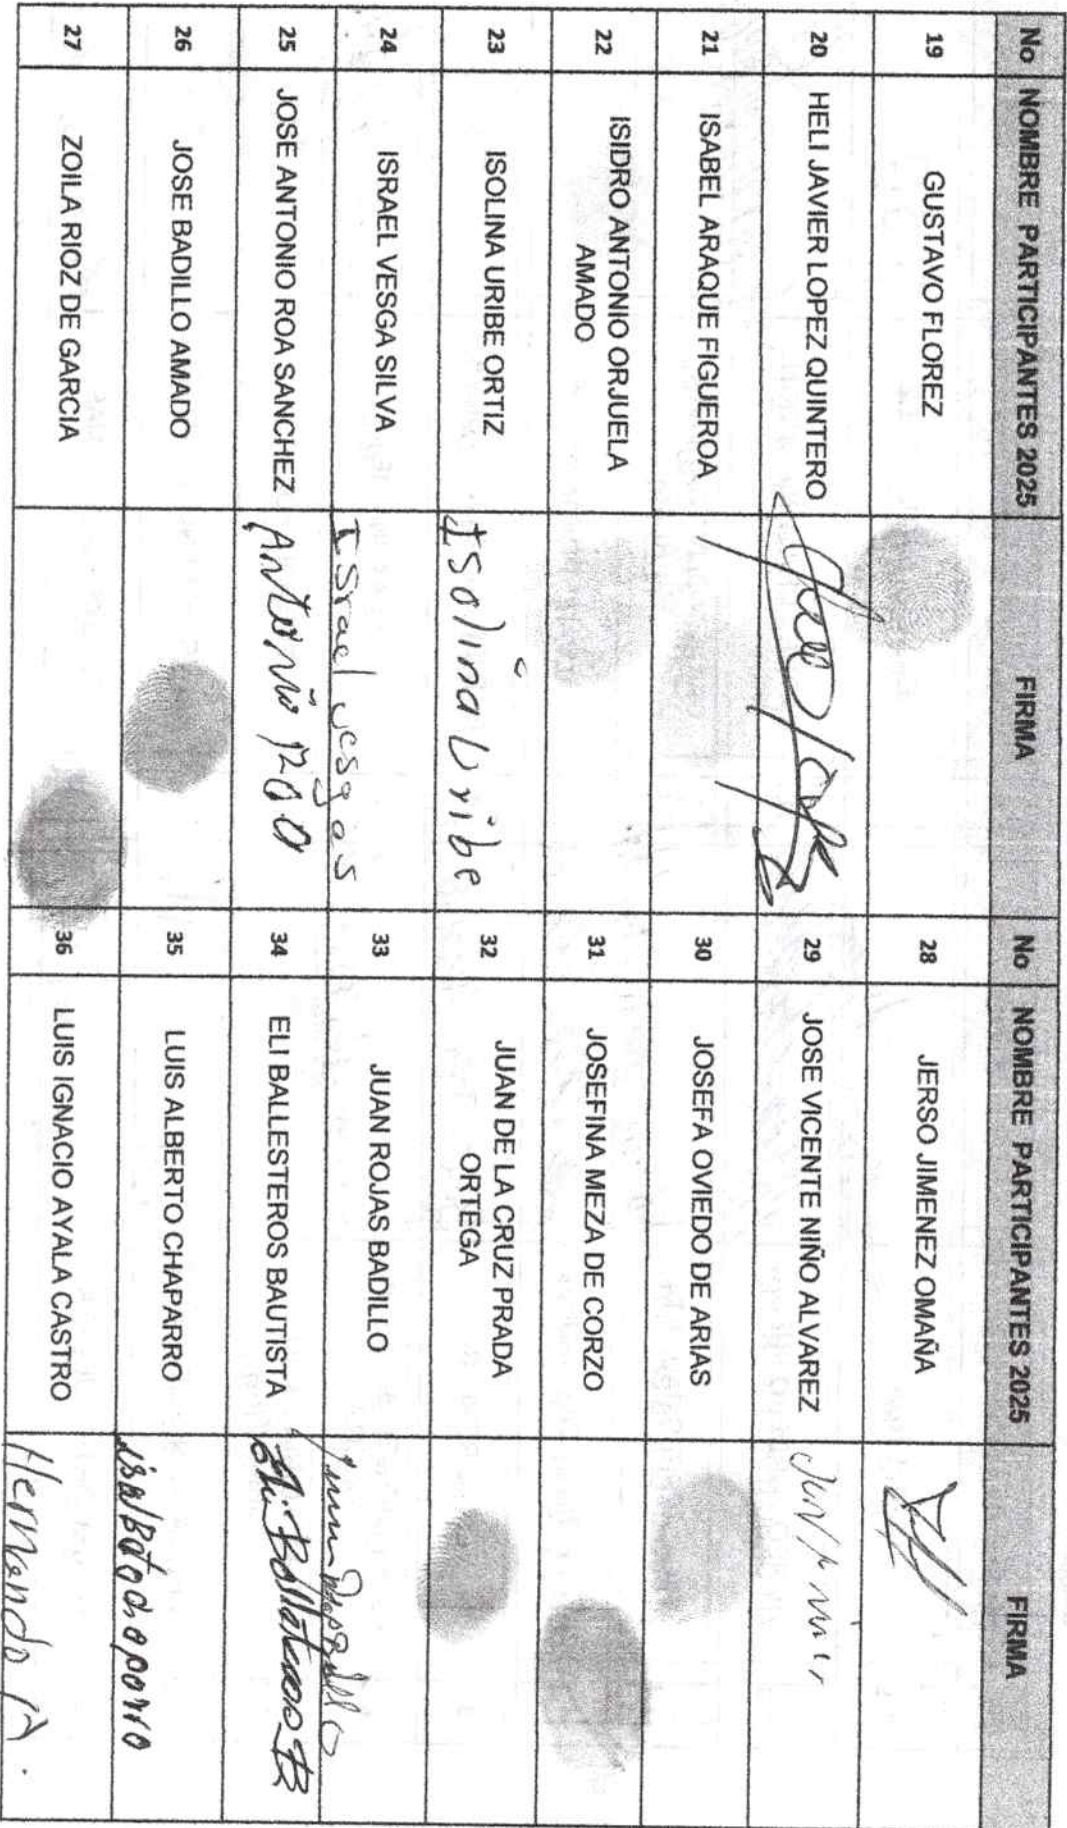 No NOMBRE PARTICIPANTES 2025 FIRMA No NOMBRE PARTICIPANTES 2025 FIRMA
19 GUSTAVO FLOREZ 28 JERSO JIMENEZ OMAÑA
20 HELI JAVIER LOPEZ QUINTERO 29 JOSE VICENTE NIÑO ALVAREZ
21 ISABEL ARAQUE FIGUEROA 30 JOSEFA OVIEDO DE ARIAS
22 ISIDRO ANTONIO ORJUELA
AMADO 31 JOSEFINA MEZA DE CORZO
23 ISOLINA URIBE ORTIZ Isolina Uribe 32 JUAN DE LA CRUZ PRADA
ORTEGA
24 ISRAEL VESGA SILVA Israel vesgas 33 JUAN ROJAS BADILLO
25 JOSE ANTONIO ROA SANCHEZ Antonio roa 34 ELI BALLESTEROS BAUTISTA Eli Ballesteros B
26 JOSE BADILLO AMADO 35 LUIS ALBERTO CHAPARRO chaparro
27 ZOILA RIOZ DE GARCIA 36 LUIS IGNACIO AYALA CASTRO Hernando A.